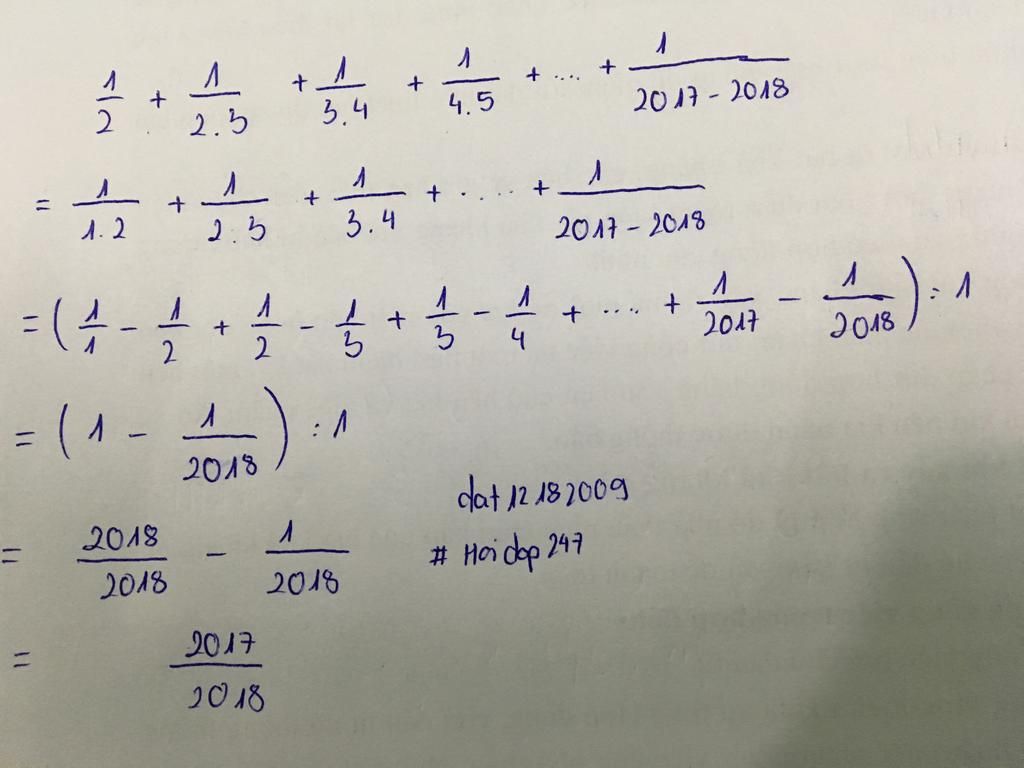 1/2 + 1/2.3 + 1/3.4 + 1/4.5 + .... + 1/2017-2018
= 1/1.2 + 1/2.3 + 1/3.4 + .... + 1/2017-2018
= (1/1 - 1/2 + 1/2 - 1/3 + 1/3 - 1/4 + .... + 1/2017 - 1/2018) : 1
= (1 - 1/2018) : 1
dat12182009
= 2018/2018 - 1/2018
# Hoidap247
= 2017/2018